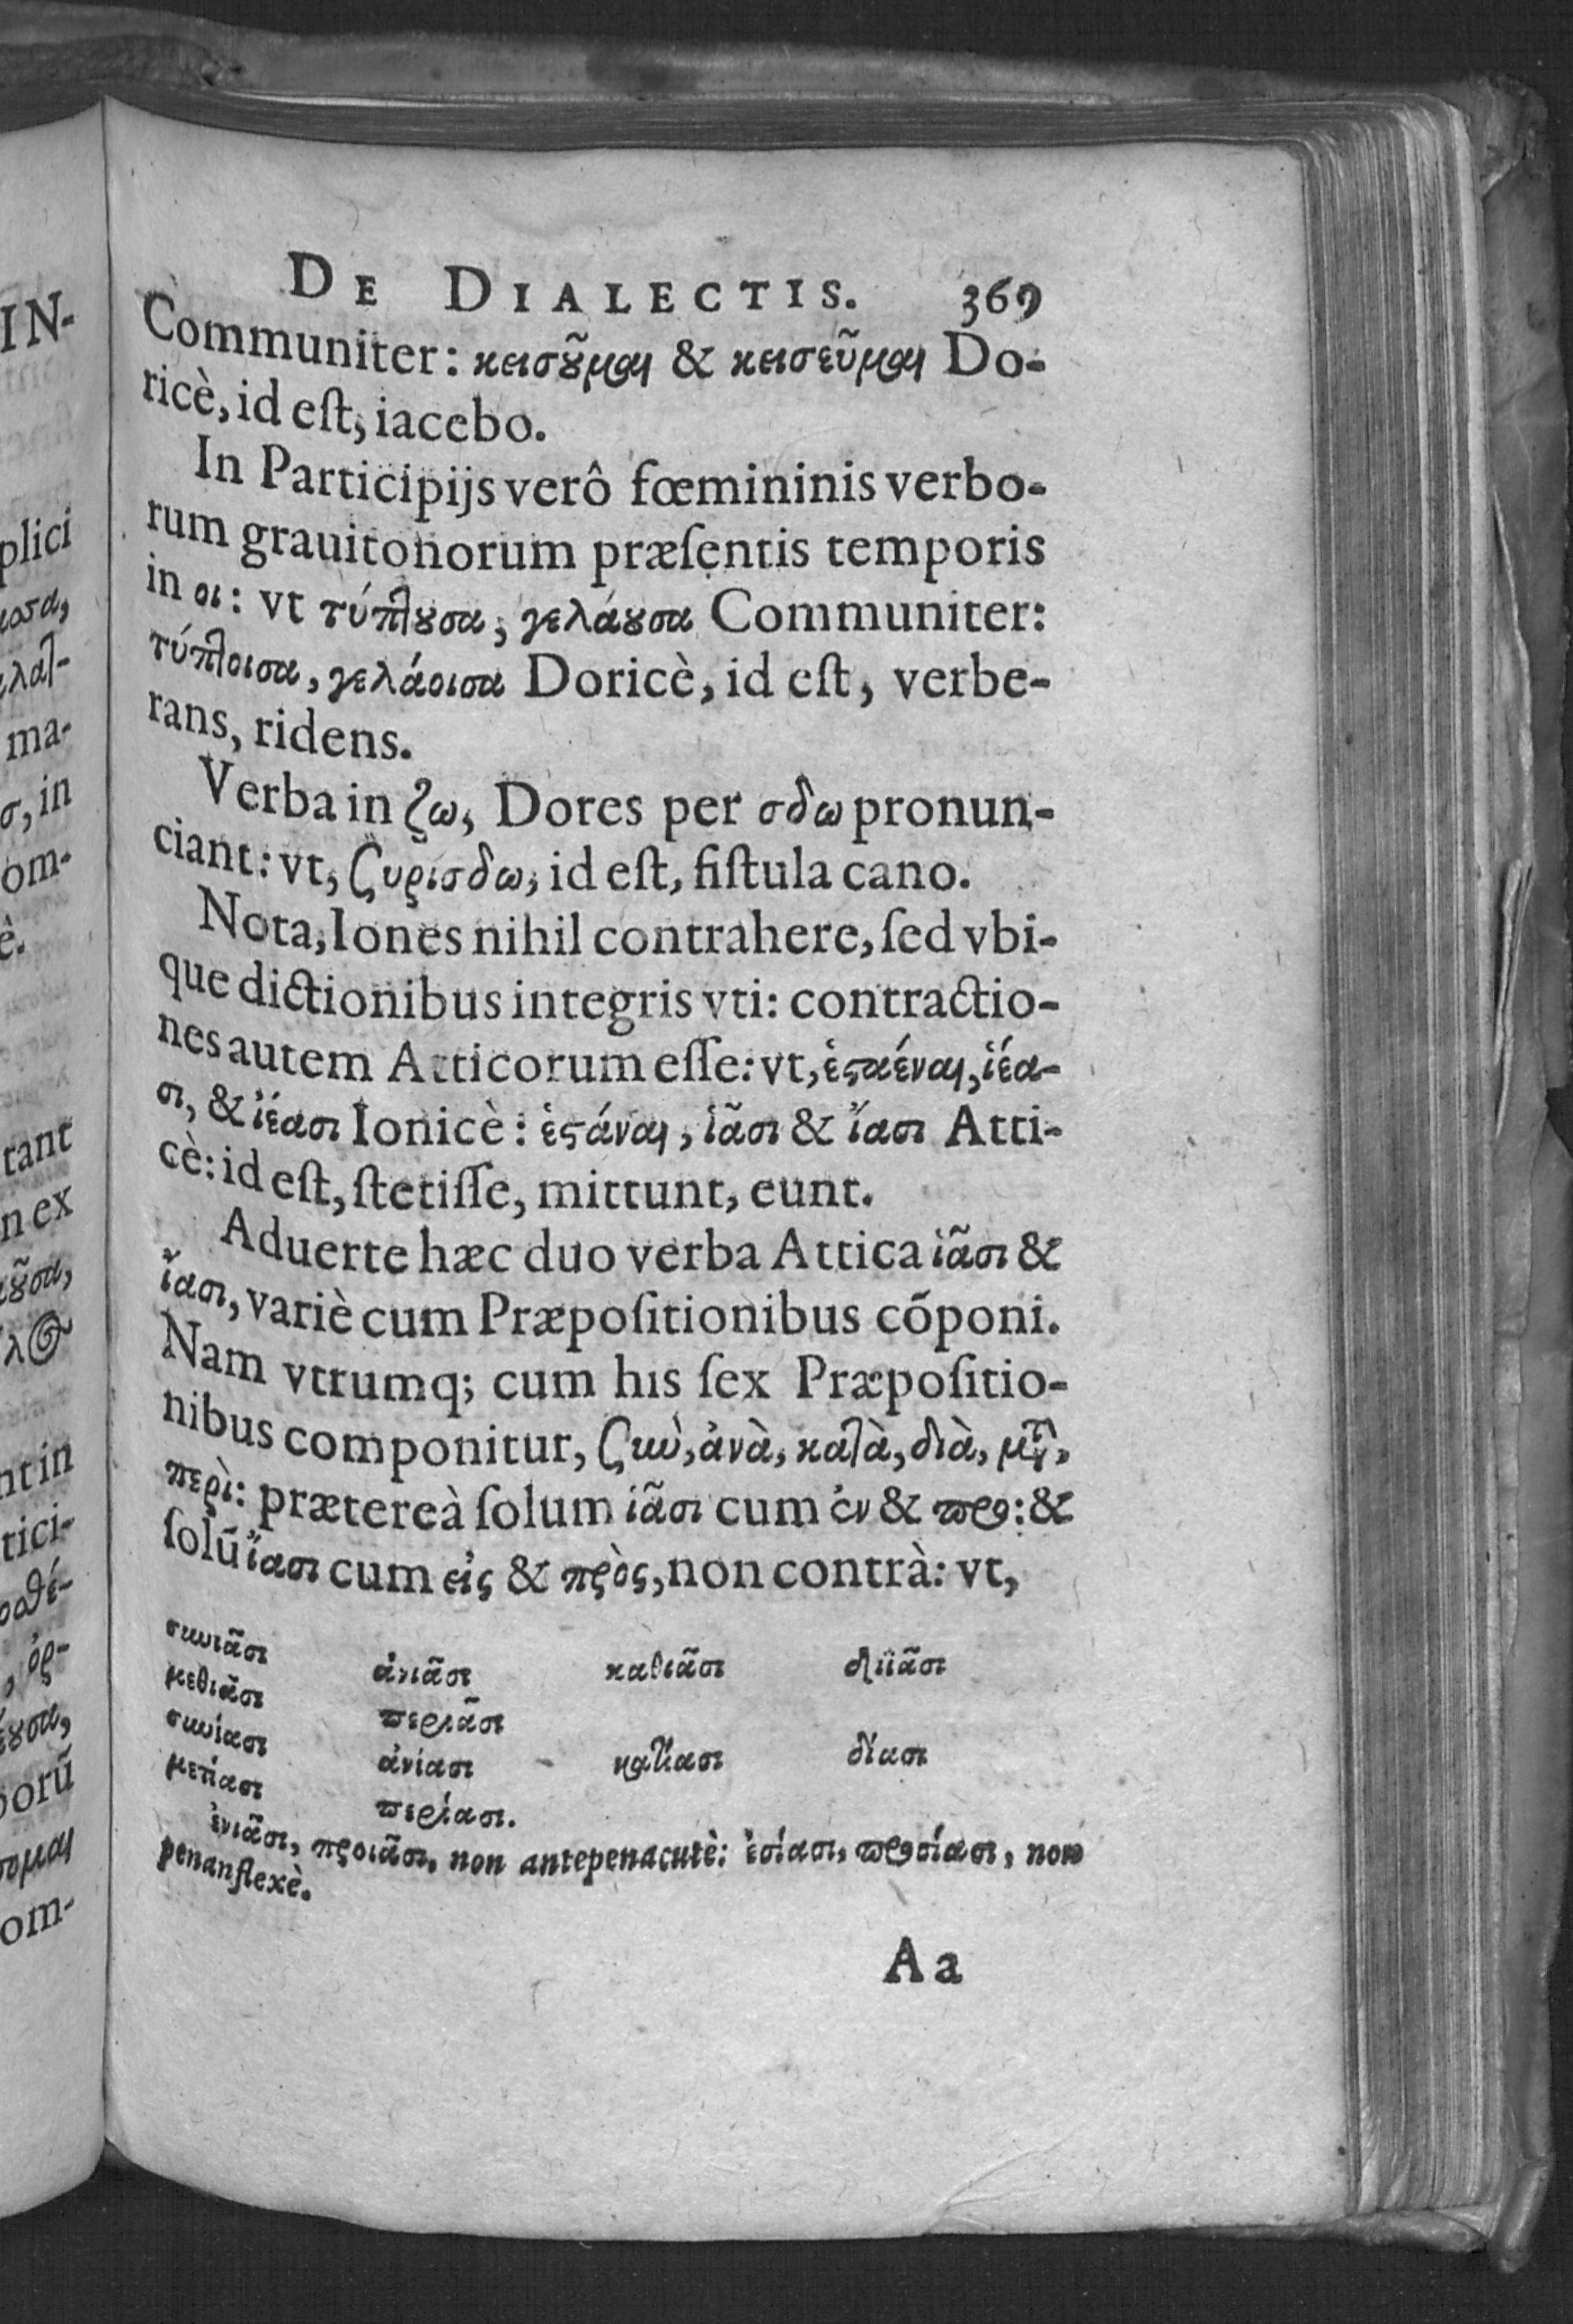 DE DIALECTIS. 369
Communiter: κεισοῦμαι & κεισεῦμαι Do-
ricè, id eſt, iacebo.
In Participijs verô fœmininis verbo-
rum grauitonorum præſentis temporis
in οι: vt τύπτουσα, γελάουσα Communiter:
τύπτοισα, γελάοισα Doricè, id eſt, verbe-
rans, ridens.
Verba in ζω, Dores per σδω pronun-
ciant: vt, συρισδω, id eſt, fiſtula cano.
Nota, Iones nihil contrahere, ſed vbi-
que dictionibus integris vti: contractio-
nes autem Atticorum eſſe: vt, ἑσταέναι, ἱέα-
σι, & ἰέασι Ionicè: ἑστάναι, ἱᾶσι & ἴασι Atti-
cè: id eſt, ſtetiſſe, mittunt, eunt.
Aduerte hæc duo verba Attica ἱᾶσι &
ἴασι, variè cum Præpoſitionibus cõponi.
Nam vtrumq; cum his ſex Præpoſitio-
nibus componitur, σὺν, ἀνὰ, κατὰ, διὰ, μετὰ,
περὶ: prætereà ſolum ἱᾶσι cum ἐν & προ: &
ſolũ ἴασι cum εἰς & πρὸς, non contrà: vt,
συνιᾶσι ἀνιᾶσι καθιᾶσι διϊᾶσι
μεθιᾶσι περιᾶσι
συνίασι ἀνίασι κατίασι δίασι
μετίασι περίασι.
ἐνιᾶσι, προιᾶσι, non antepenacutè: ἐσίασι, προσίασι, non
penanflexè.
Aa
IN-
plici
λατ-
ma-
σ, in
om-
è.
tant
n ex
ȣ͂σα,
nt in
tici-
οθέ-
, ὀρ-
ȣσα,
orũ
ομαι
om-